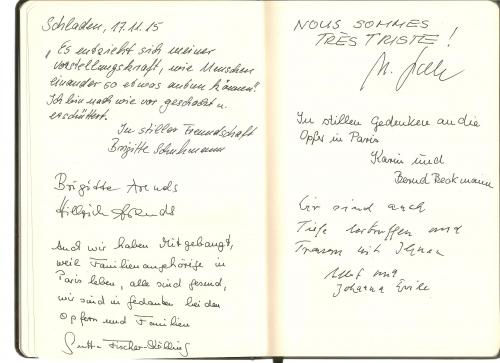 Schladen, 17.11.15
„Es entzieht sich meiner
vorstellungskraft, wie Menschen
einander so etwas antun können"
Ich bin nach wie vor geschockt u.
erschüttert.
In stiller Freundschaft
Brigitte Schuhmann
Brigitte Arends
Hillrich Arends
Auch wir haben Mitgebangt,
weil Familienangehörige in
Paris leben, alle sind gesund,
wir sind in gedanken bei den
Opfern und Familien
Jutta Fischer-
NOUS SOMMES
TRÈS TRISTE !
In stillen Gedenken an die
Opfer in Paris
Karin und
Bernd Beckmann
Wir sind auch
Tiefe betroffen und
Trauern mit Ihnen
und
Johanna